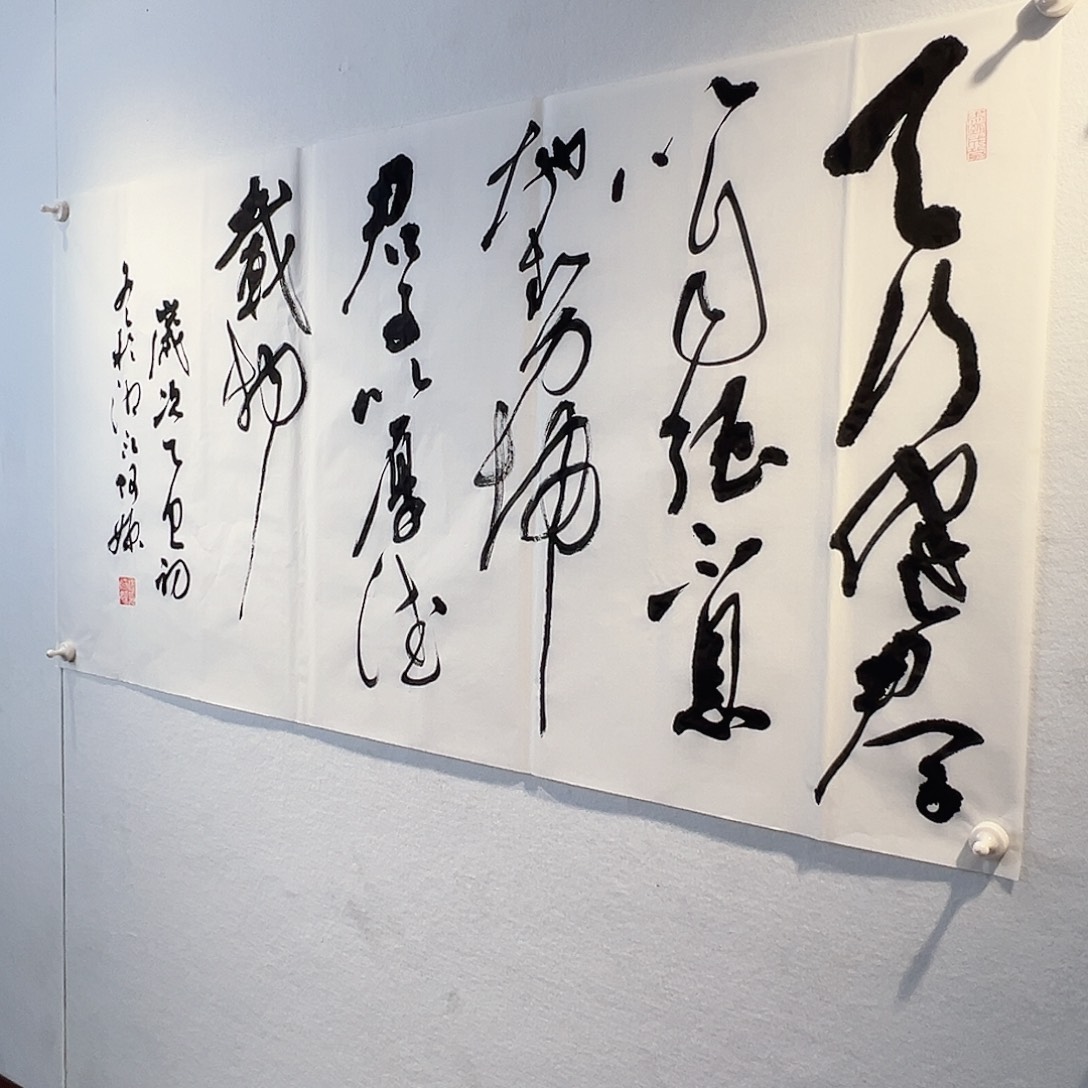 天行健君子
以自強不息
地勢坤
君子以厚德
載物
歲次乙巳初
冬於湘江